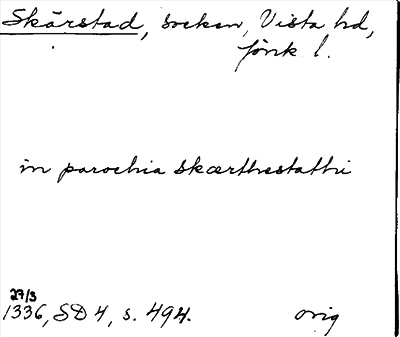 Skärstad, socken, Vista hd,
Jönk l.
in parochia skærthestathi
27/3
1336, SD 4, s. 494. orig